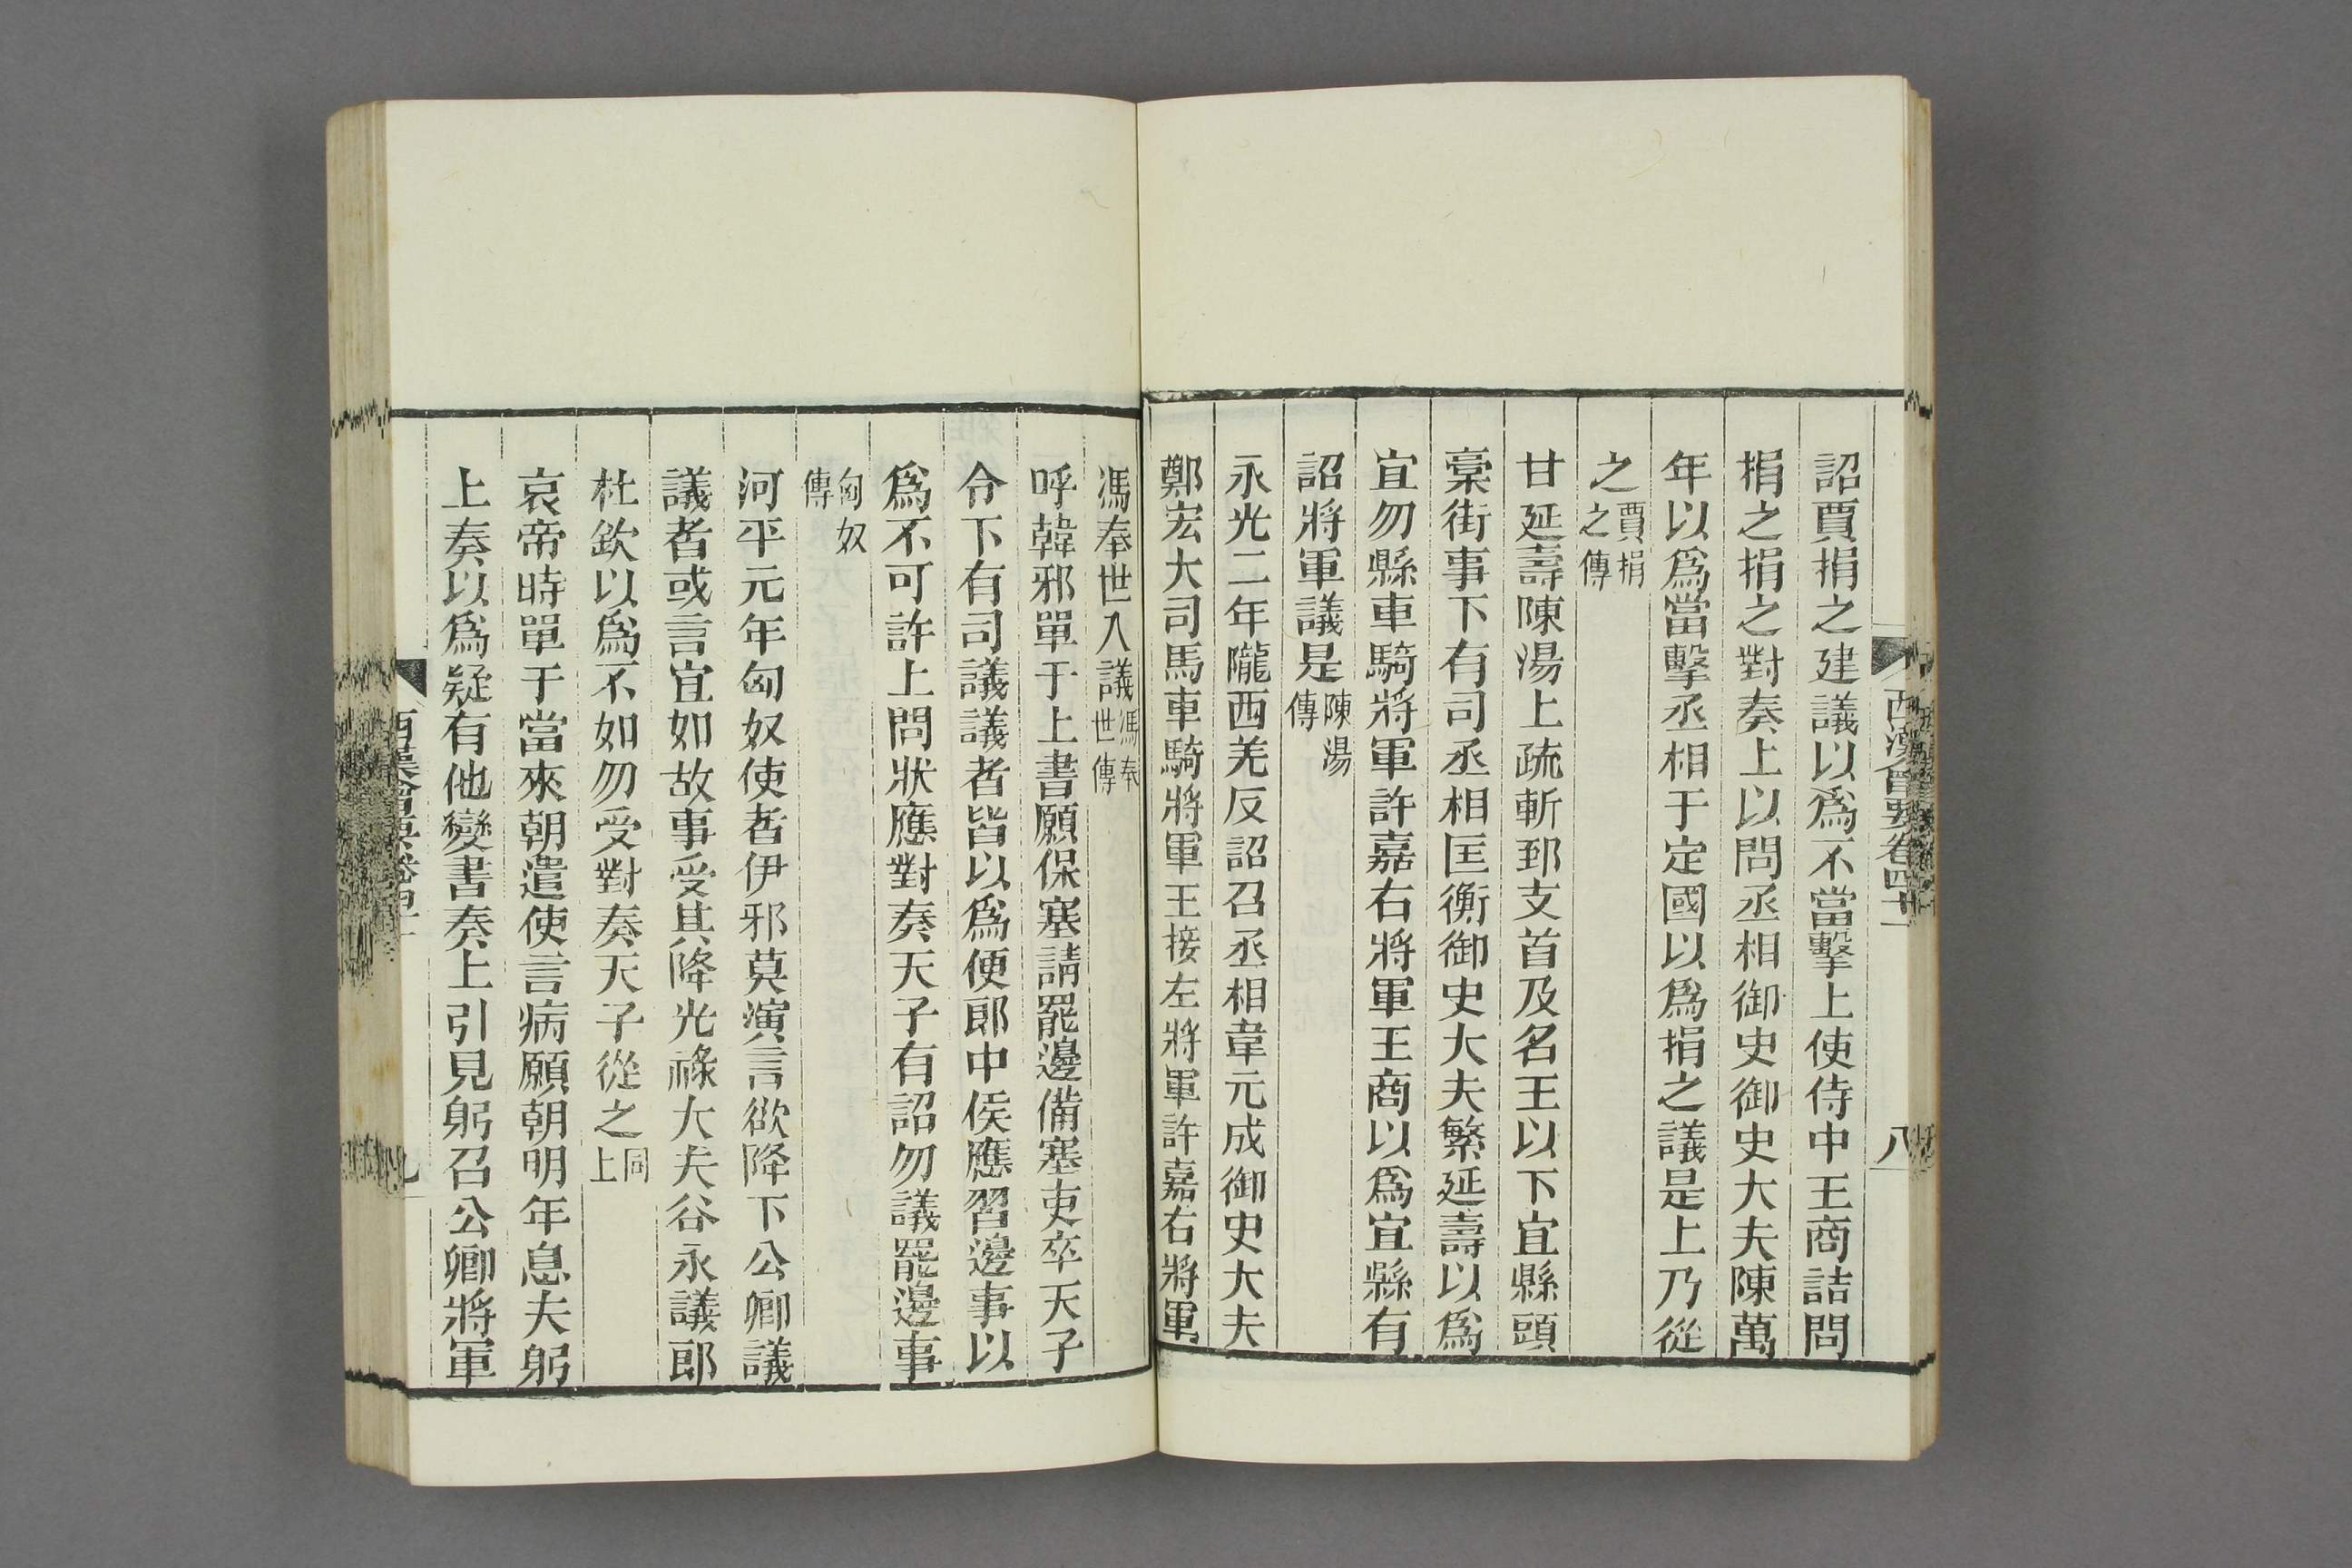 詔賈捐之建議以爲不當擊上使侍中王商詰問
捐之捐之對奏上以問丞相御史御史大夫陳萬
年以爲當擊丞相于定國以爲捐之議是上乃從
之賈捐之傳
甘延壽陳湯上疏斬郅支首及名王以下宜縣頭
槀街事下有司丞相匡衡御史大夫繁延壽以爲
宜勿縣車騎將軍許嘉右將軍王商以爲宜縣有
詔將軍議是陳湯傳
永光二年隴西羌反詔召丞相韋元成御史大夫
鄭宏大司馬車騎將軍王接左將軍許嘉右將軍
西漢會要卷四十一
八
馮奉世入議馮奉世傳
呼韓邪單于上書願保塞請罷邊備塞吏卒天子
令下有司議議者皆以爲便郎中侯應習邊事以
爲不可許上問狀應對奏天子有詔勿議罷邊事
匈奴傳
河平元年匈奴使者伊邪莫演言欲降下公卿議
議者或言宜如故事受其降光祿大夫谷永議郎
杜欽以爲不如勿受對奏天子從之同上
哀帝時單于當來朝遣使言病願朝明年息夫躬
上奏以爲疑有他變書奏上引見躬召公卿將軍
西漢會要卷四十一
九